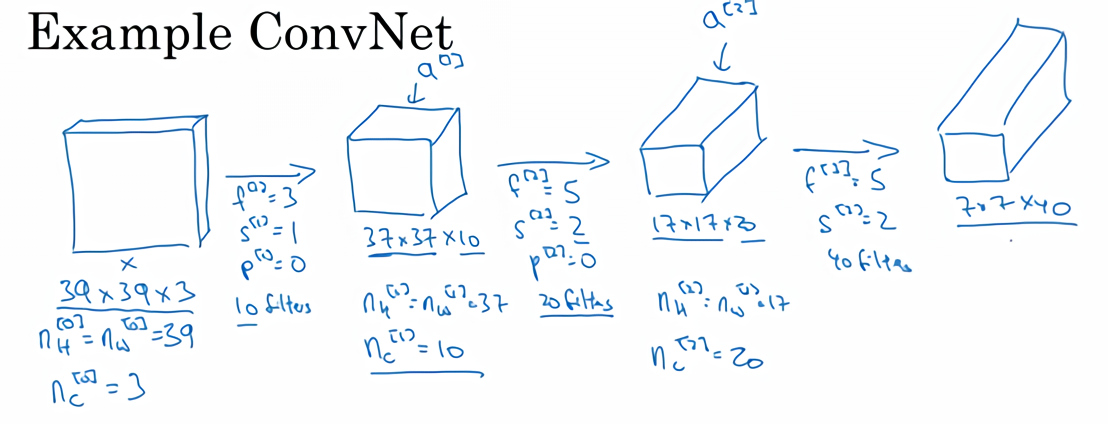 Example ConvNet
a^[1]
a^[2]
x
39 × 39 × 3
n_H^[0] = n_W^[0] = 39
n_C^[0] = 3
f^[1] = 3
s^[1] = 1
p^[1] = 0
10 filters
37 × 37 × 10
n_H^[1] = n_W^[1] = 37
n_C^[1] = 10
f^[2] = 5
s^[2] = 2
p^[2] = 0
20 filters
17 × 17 × 20
n_H^[2] = n_W^[2] = 17
n_C^[2] = 20
f^[3] = 5
s^[3] = 2
40 filters
7 × 7 × 40